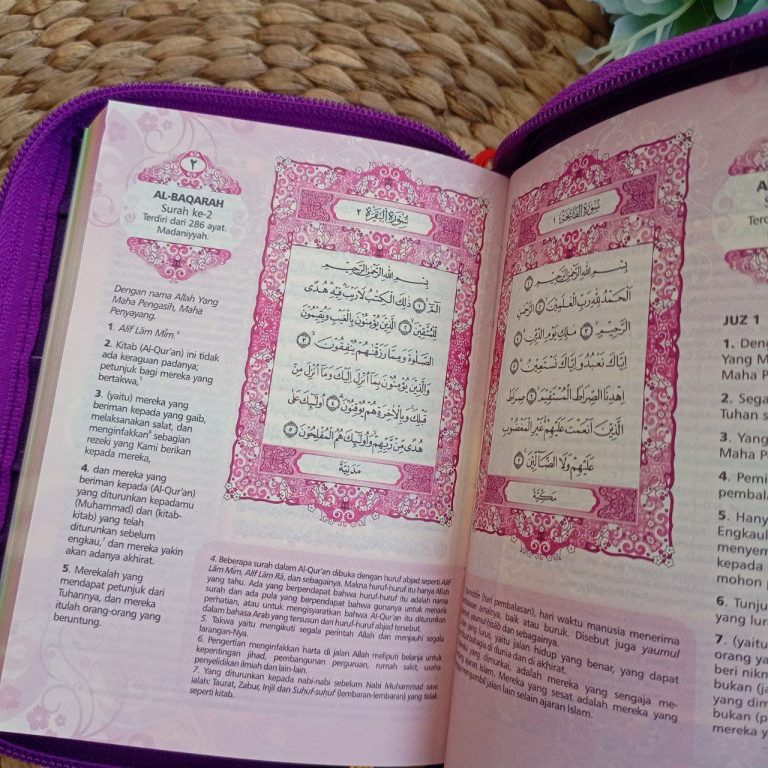 ٢
AL-BAQARAH
Surah ke-2
Terdiri dari 286 ayat.
Madaniyyah.
Dengan nama Allah Yang
Maha Pengasih, Maha
Penyayang.
1. Alif Lām Mīm.⁴
2. Kitab (Al-Qur'an) ini tidak
ada keraguan padanya;
petunjuk bagi mereka yang
bertakwa,⁵
3. (yaitu) mereka yang
beriman kepada yang gaib,
melaksanakan salat, dan
menginfakkan⁶ sebagian
rezeki yang Kami berikan
kepada mereka,
4. dan mereka yang
beriman kepada (Al-Qur'an)
yang diturunkan kepadamu
(Muhammad) dan (kitab-
kitab) yang telah
diturunkan sebelum
engkau,⁷ dan mereka yakin
akan adanya akhirat.
5. Merekalah yang
mendapat petunjuk dari
Tuhannya, dan mereka
itulah orang-orang yang
beruntung.
سُوْرَةُ الْبَقَرَةِ ٢
بِسْمِ اللّٰهِ الرَّحْمٰنِ الرَّحِيْمِ
الۤمّۤ ۚ ١ ذٰلِكَ الْكِتٰبُ لَا رَيْبَ ۛ فِيْهِ ۛ هُدًى
لِّلْمُتَّقِيْنَ ۙ ٢ الَّذِيْنَ يُؤْمِنُوْنَ بِالْغَيْبِ وَيُقِيْمُوْنَ
الصَّلٰوةَ وَمِمَّا رَزَقْنٰهُمْ يُنْفِقُوْنَ ۙ ٣
وَالَّذِيْنَ يُؤْمِنُوْنَ بِمَآ اُنْزِلَ اِلَيْكَ وَمَآ اُنْزِلَ مِنْ
قَبْلِكَ ۚ وَبِالْاٰخِرَةِ هُمْ يُوْقِنُوْنَ ۗ ٤ اُولٰۤىِٕكَ عَلٰى
هُدًى مِّنْ رَّبِّهِمْ ۙ وَاُولٰۤىِٕكَ هُمُ الْمُفْلِحُوْنَ ٥
مَدَنِيَّة
4. Beberapa surah dalam Al-Qur'an dibuka dengan huruf abjad seperti Alif
Lām Mīm, Alif Lām Rā, dan sebagainya. Makna huruf-huruf itu hanya Allah
yang tahu. Ada yang berpendapat bahwa huruf-huruf itu adalah nama
surah dan ada pula yang berpendapat bahwa gunanya untuk menarik
perhatian, atau untuk mengisyaratkan bahwa Al-Qur'an itu diturunkan
dalam bahasa Arab yang tersusun dari huruf-huruf abjad tersebut.
5. Takwa yaitu mengikuti segala perintah Allah dan menjauhi segala
larangan-Nya.
6. Pengertian menginfakkan harta di jalan Allah meliputi belanja untuk
kepentingan jihad, pembangunan perguruan, rumah sakit, usaha
penyelidikan ilmiah dan lain-lain.
7. Yang diturunkan kepada nabi-nabi sebelum Nabi Muhammad saw.
ialah: Taurat, Zabur, Injil dan Suhuf-suhuf (lembaran-lembaran) yang tidak
seperti kitab.
سُوْرَةُ الْفَاتِحَةِ ١
بِسْمِ اللّٰهِ الرَّحْمٰنِ الرَّحِيْمِ ١
اَلْحَمْدُ لِلّٰهِ رَبِّ الْعٰلَمِيْنَ ۙ ٢ الرَّحْمٰنِ
الرَّحِيْمِ ۙ ٣ مٰلِكِ يَوْمِ الدِّيْنِ ۗ ٤
اِيَّاكَ نَعْبُدُ وَاِيَّاكَ نَسْتَعِيْنُ ۗ ٥
اِهْدِنَا الصِّرَاطَ الْمُسْتَقِيْمَ ۙ ٦ صِرَاطَ
الَّذِيْنَ اَنْعَمْتَ عَلَيْهِمْ ەۙ غَيْرِ الْمَغْضُوْبِ
عَلَيْهِمْ وَلَا الضَّاۤلِّيْنَ ٧
مَكِّيَّة
(hari pembalasan), hari waktu manusia menerima
amalnya, baik atau buruk. Disebut juga yaumul
hisāb dan sebagainya.
yang lurus, yaitu jalan hidup yang benar, yang dapat
bahagia di dunia dan di akhirat.
yang dimurkai, adalah mereka yang sengaja me-
ajaran Islam. Mereka yang sesat adalah mereka yang
mengambil jalan lain selain ajaran Islam.
A
S
Terd
JUZ 1
1. Deng
Yang M
Maha P
2. Sega
Tuhan s
3. Yang
Maha P
4. Pemi
pembala
5. Hany
Engkaul
menyem
kepada
mohon p
6. Tunju
yang lur
7. (yaitu
orang ya
beri nikm
bukan (ja
yang dim
bukan (p
mereka y